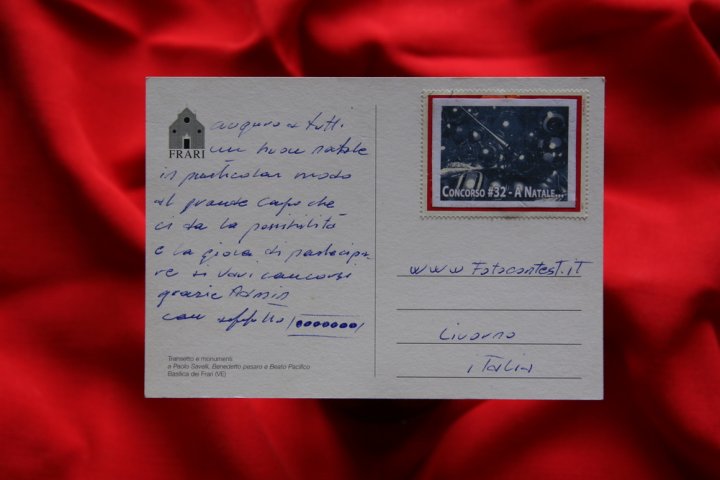 FRARI
auguro a tutti
un buon natale
in particolar modo
al grande capo che
ci da la possibilità
e la gioia di partecipa
re ai vari concorsi
grazie Admin
con affetto
Transetto e monumenti
a Paolo Savelli, Benedetto pesaro e Beato Pacifico
Basilica dei Frari (VE)
CONCORSO #32 - A NATALE...
www Fotocontest.iT
Livorno
iTalia